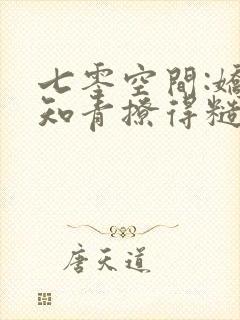 七零空間:嬌
知青撩得糙
唐天道